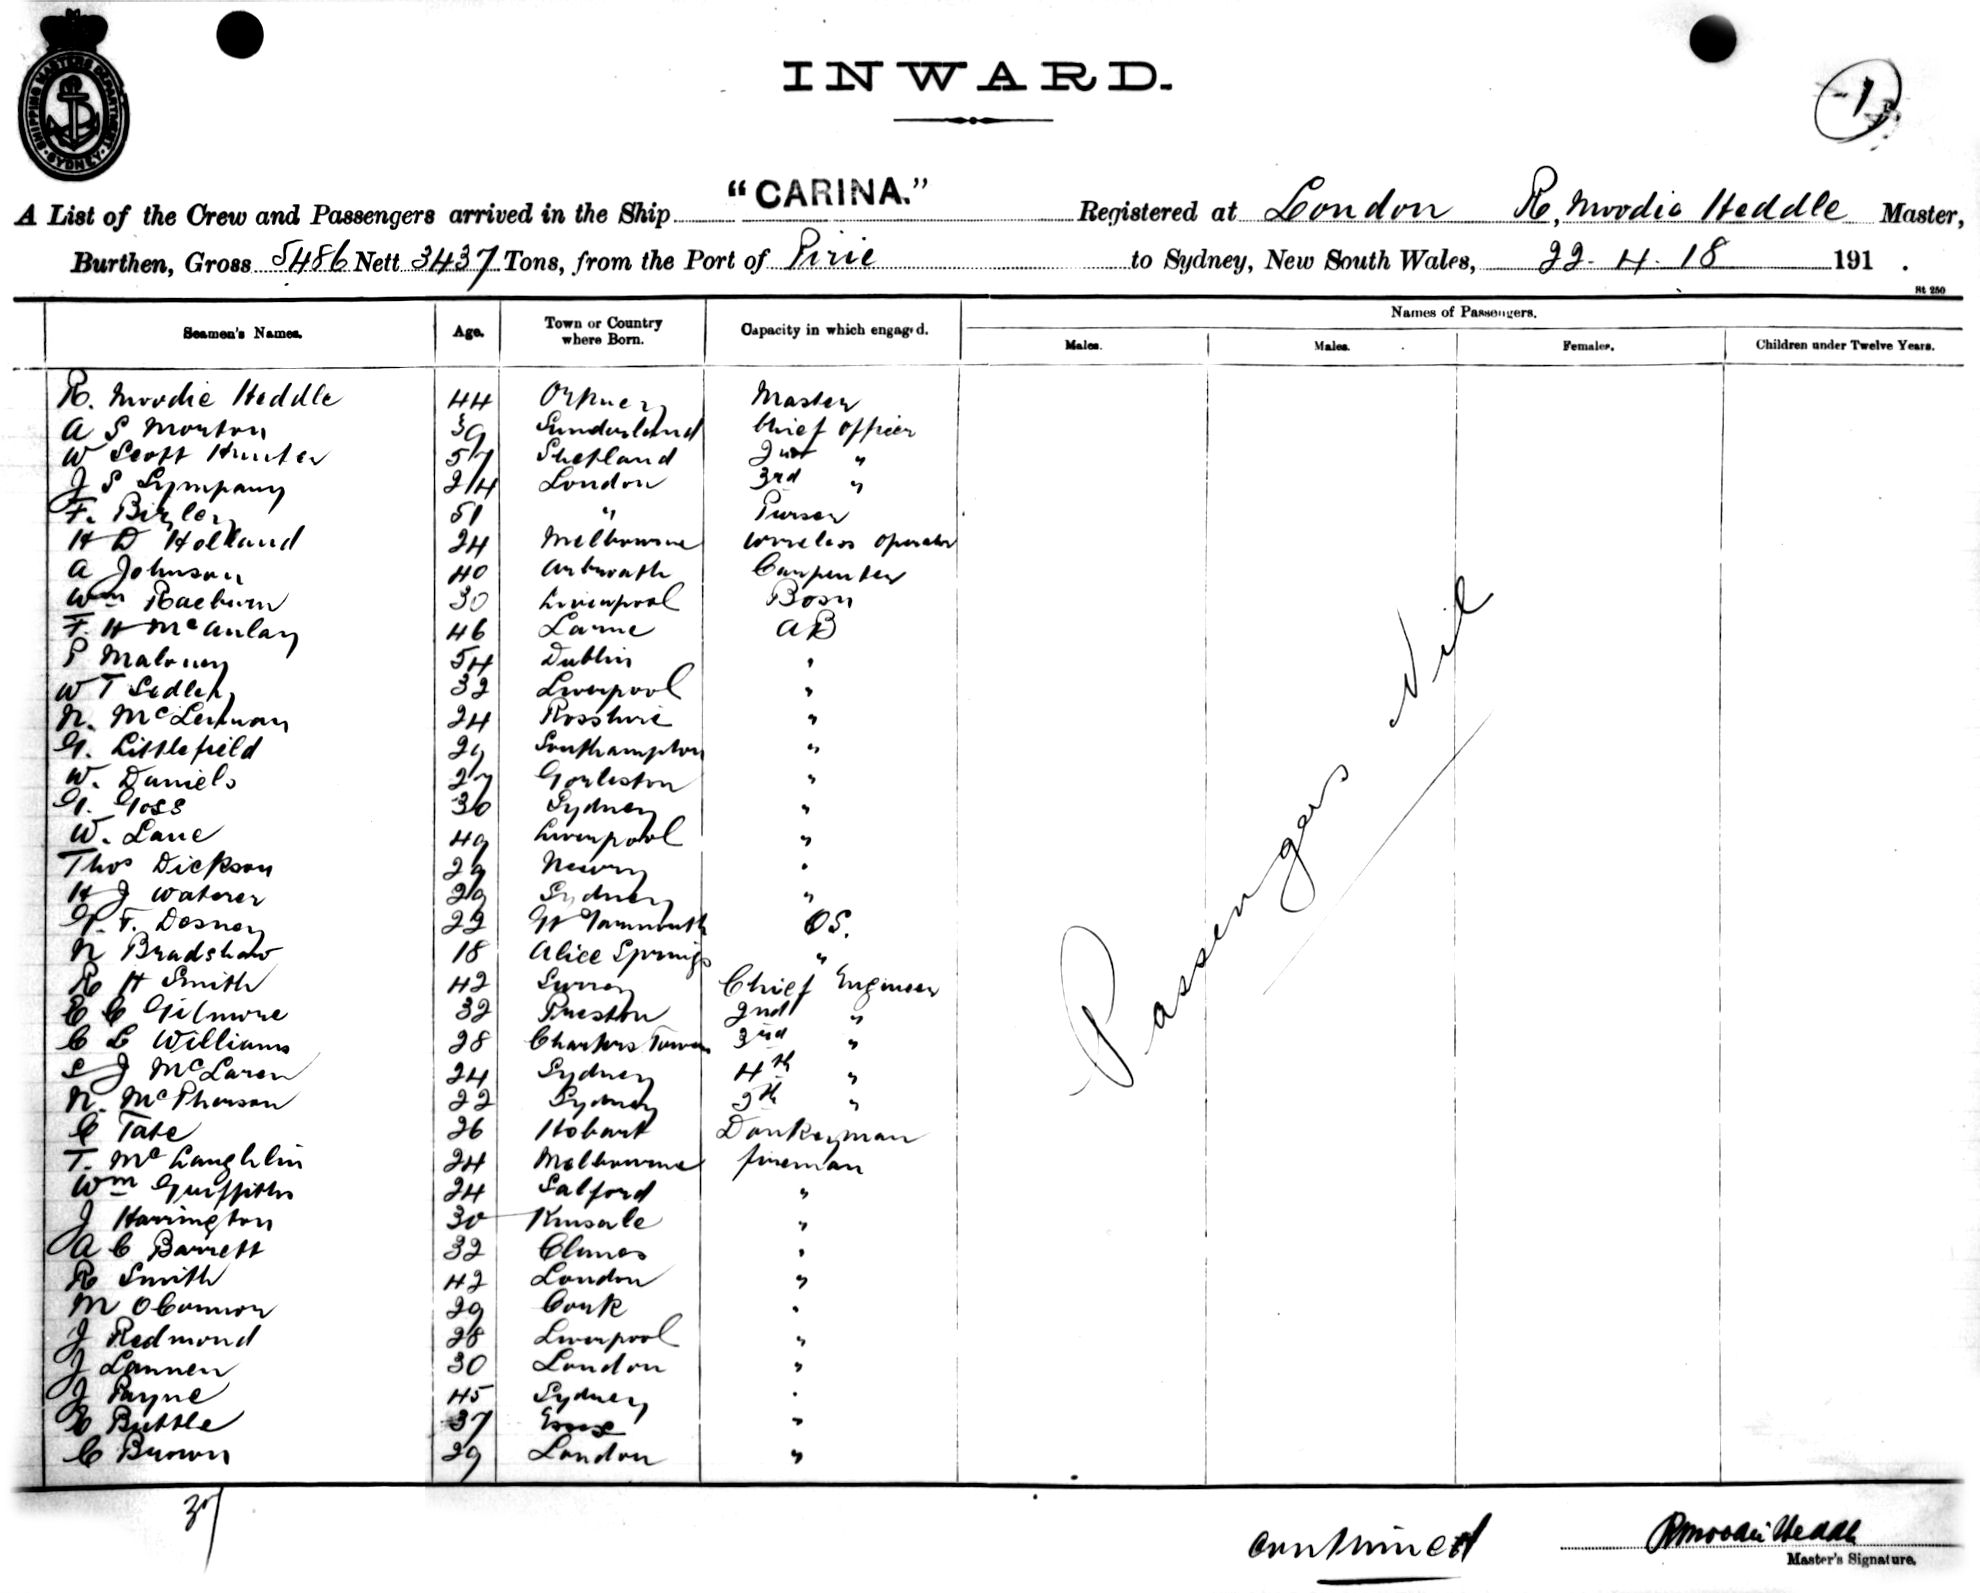 SHIPPING MASTERS DEPARTMENT
SYDNEY
INWARD.
1
A List of the Crew and Passengers arrived in the Ship "CARINA." Registered at London R, Moodie Heddle Master,
Burthen, Gross 5486 Nett 3437 Tons, from the Port of Pirie to Sydney, New South Wales, 22. 4. 18 191 .
St 250
Seamen's Names. Age. Town or Country where Born. Capacity in which engaged. Names of Passengers.
Males. Males. Females. Children under Twelve Years.
R. Moodie Heddle 44 Orkney Master
A S Morton 39 Sunderland Chief officer
W Scott Hunter 57 Shetland 2nd "
J S Sympany 24 London 3rd "
F. Bizley 51 " Purser
H D Holland 24 Melbourne Wireless operator
A Johnson 40 Arbroath Carpenter
Wm Raeburn 30 Liverpool Bosn
F. H McAulay 46 Larne AB
P Maloney 54 Dublin "
W T Sedley 32 Liverpool "
N. McLennan 24 Rosshire "
G. Littlefield 29 Southampton "
W. Daniels 27 Gorleston "
G. Goss 30 Sydney "
W. Lane 49 Liverpool "
Thos Dickson 29 Newry "
H J Waterer 29 Sydney "
G. F. Dosney 22 Gt Yarmouth OS.
N Bradshaw 18 Alice Springs "
R H Smith 42 Surrey Chief Engineer
E C Gilmore 32 Preston 2nd "
C L Williams 28 Charters Towers 3rd "
S J McLaren 24 Sydney 4th "
N. McPherson 22 Sydney 5th "
C Tate 26 Hobart Donkeyman
T. McLaughlin 24 Melbourne fireman
Wm Griffiths 24 Salford "
J Harrington 30 Kinsale "
A C Barrett 32 Clunes "
R Smith 42 London "
M OConnor 29 Cork "
J Redmond 28 Liverpool "
J Lannen 30 London "
J Payne 45 Sydney "
E Buttle 37 Essex "
C Brown 29 London "
Passengers Nil
37
continued
R Moodie Heddle
Master's Signature.